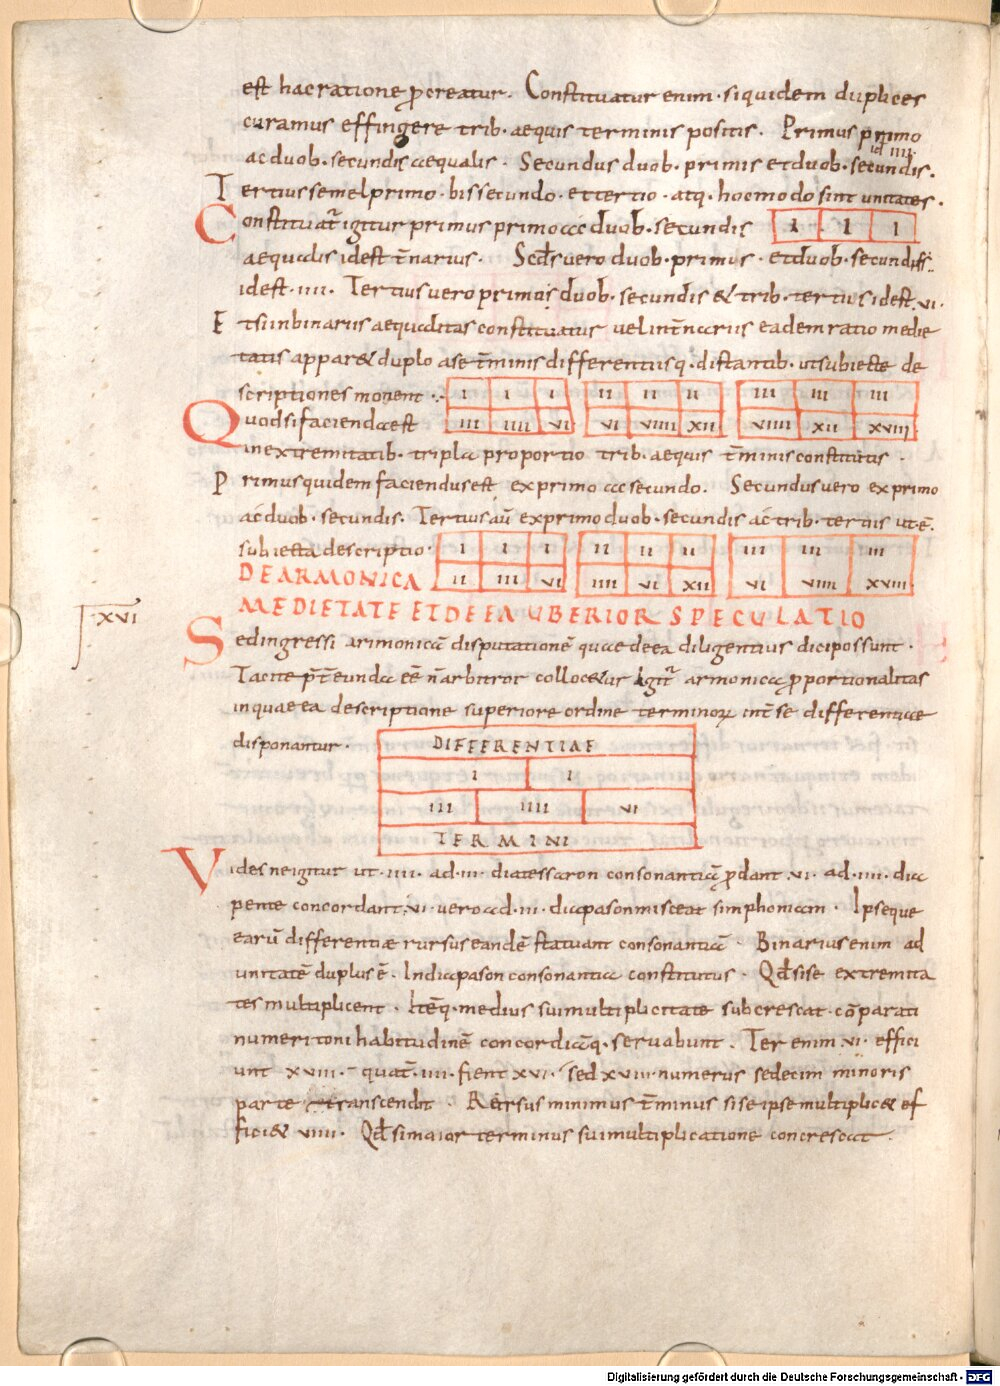 est hac ratione ꝓcreatur. Constituatur enim. siquidem duplices
curamus effingere trib. aequis terminis positis. Primus primo
id IIII
ac duob. secundis aequalis. Secundus duob. primis et duob. secundis.
Tertius semel primo. bis secundo. et tertio. atq. hoc modo sint unitates.
Constituat̄ igitur primus primo ac duob. secundis I I I
aequalis id est t̄narius. Scd̄s vero duob. primis. et duob. secundis
id est. IIII. Tertius vero primo duob. secundis & trib. tertiis id est. VI.
Et si in binariis aequalitas constituatur vel in t̄nariis eadem ratio medie
tatis appar& duplo a se t̄minis differentiisq. distantib. ut subiectę de
scriptiones monent. I I I II II II III III III
Quod si facienda est III IIII VI VI VIIII XII VIIII XII XVIII
in extremitatib. tripla proportio trib. aequis t̄minis constitutis.
Primus quidem faciendus est ex primo ac secundo. Secundus vero ex primo
ac duob. secundis. Tertius aū ex primo duob. secundis ac trib. tertiis ut ē.
subiecta descriptio. I I I II II II III III III
DE ARMONICA II III VI IIII VI XII VI VIIII XVIII
MEDIETATE ET DE EA UBERIOR SPECULATIO
XVI
Sed ingressi armonicā disputationē quae de ea diligentius dici possunt.
Tacite p̄t̄eunda eē n̄ arbitror colloc&ur igit̄ armonica ꝓportionalitas
in qua ea descriptione superiore ordine terminoꝝ int̄ se differentiae
disponantur. DIFFERENTIAE
I I
III IIII VI
TERMINI
Videsne igitur ut. IIII. ad. III. diatessaron consonantiā ꝓdant. VI. ad. IIII. dia
pente concordant. VI. vero ad. III. diapason misceat simphoniam. Ipseque
earū differentiae rursus eandē statuant consonantiā. Binarius enim ad
unitatē duplus ē. In diapason consonantia constitutus. Qd̄ si se extremita
tes multiplicent. Itēq. medius sui multiplicitate subcrescat. cōparati
numeri toni habitudinē concordiāq. servabunt. Ter enim. VI. effici
unt XVIII. quat̄. IIII. fient XVI. sed XVIII. numerus sedecim minoris
parte transcendit. Rursus minimus t̄minus si se ipse multiplic& ef
fici& VIIII. Qd̄ si maior terminus sui multiplicatione concrescat.
Digitalisierung gefördert durch die Deutsche Forschungsgemeinschaft - DFG